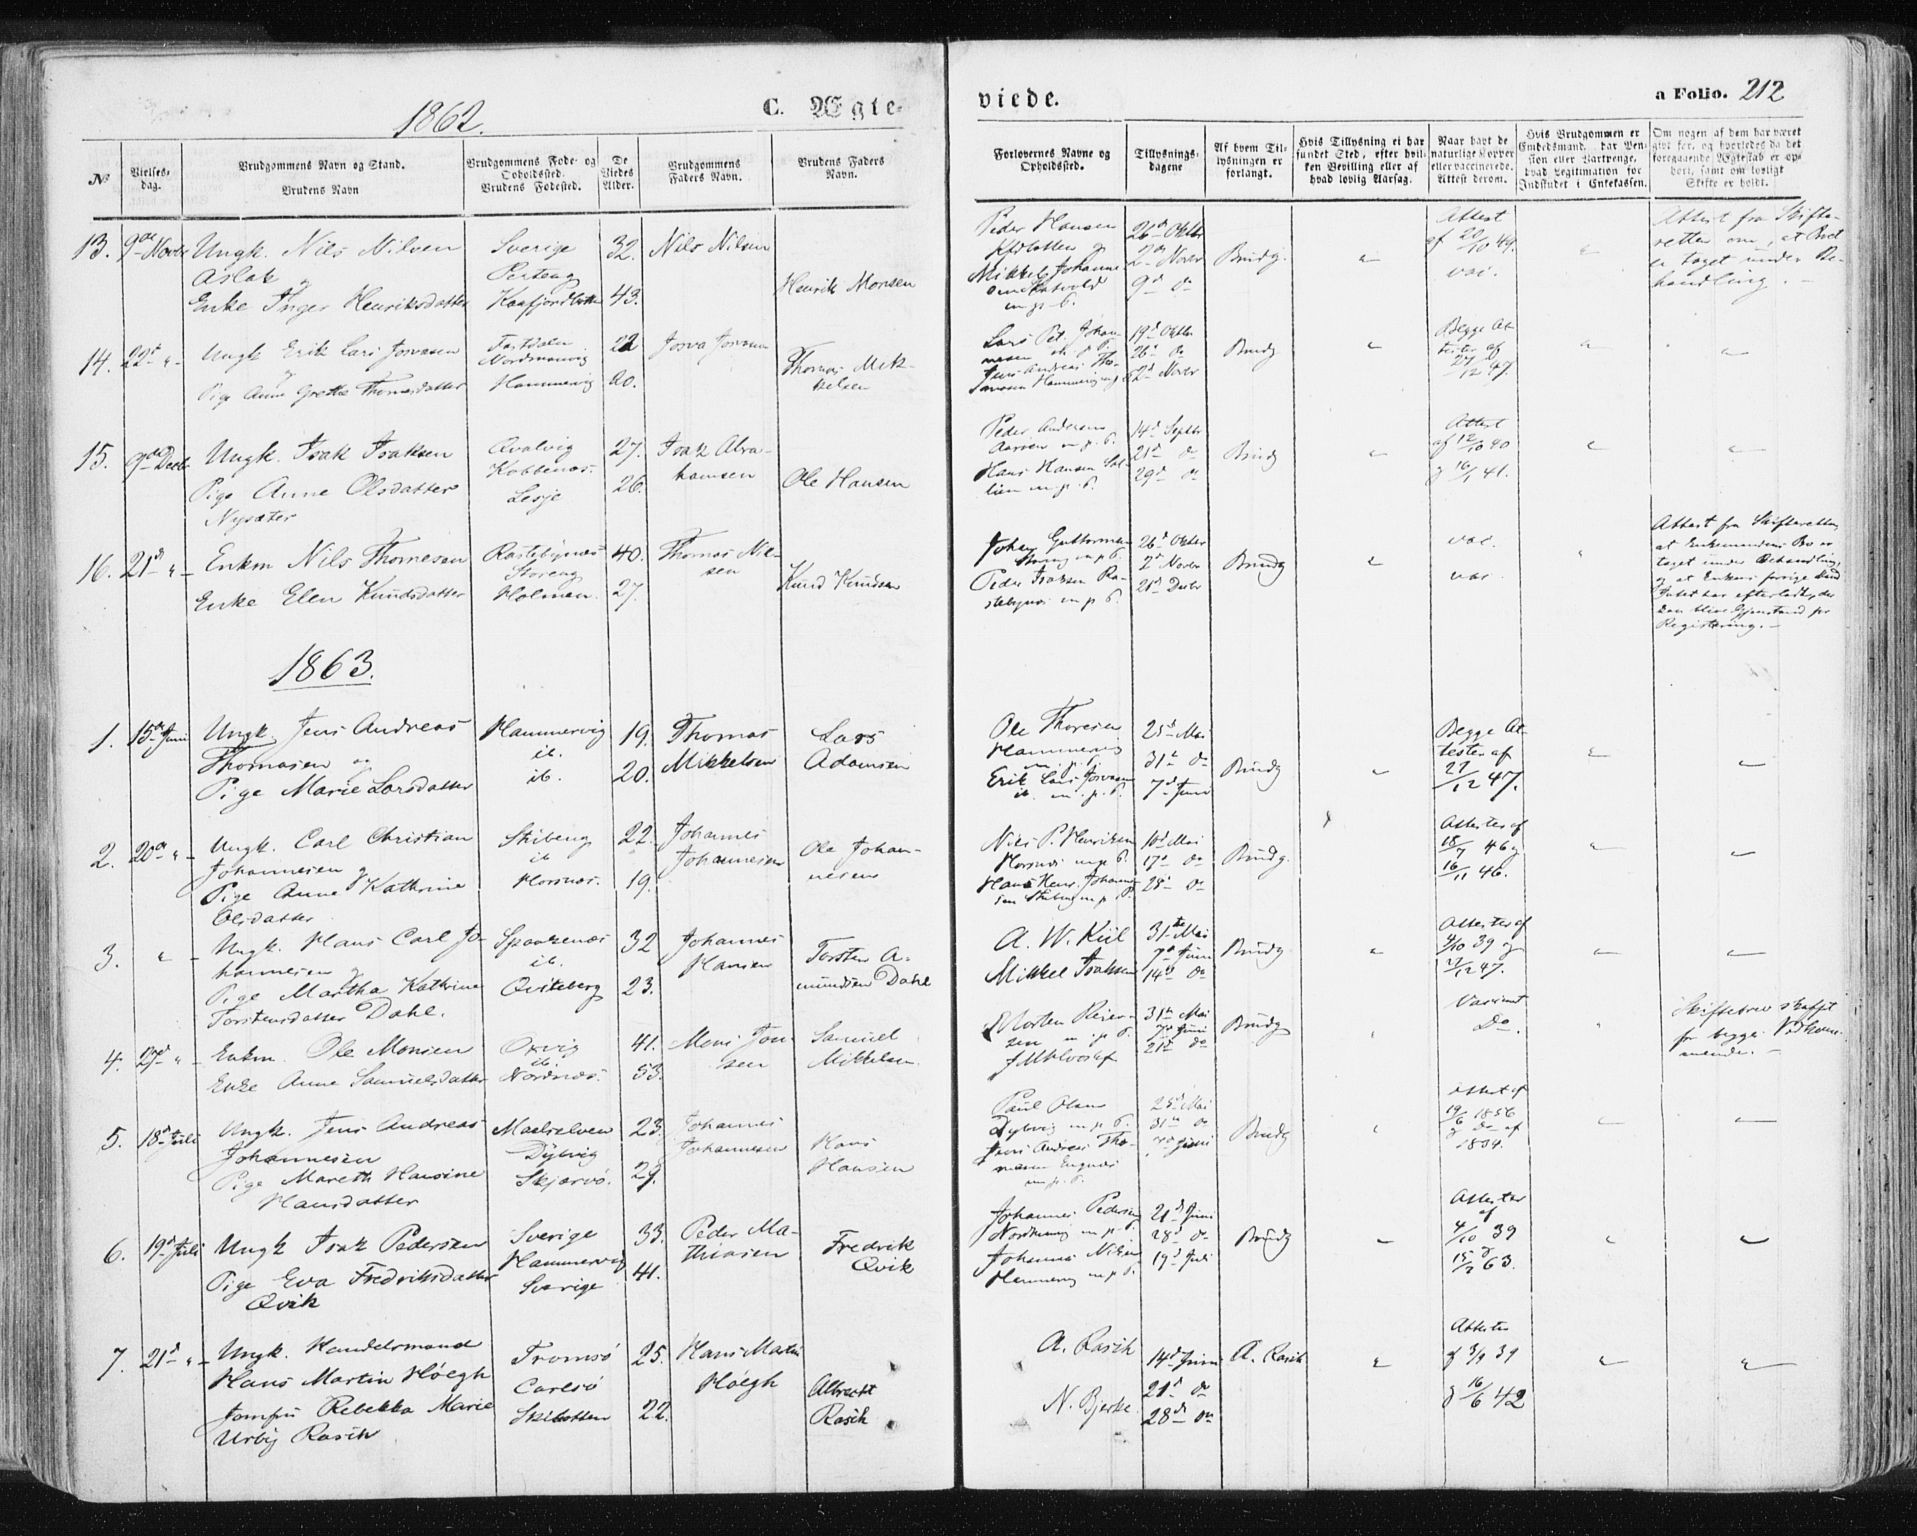 1862.
C. Ægte-
viede.
a Folio. 212
№
Vielses-
dag.
Brudgommens Navn og Stand.
Brudens Navn
Brudgommens Føde- og
Opholdssted.
Brudens Fødested.
De
Viedes
Alder.
Brudgommens
Faders Navn.
Brudens Faders
Navn.
Forlovernes Navne og
Opholdssted.
Tillysnings-
dagene
Af hvem Til-
lysningen er
forlangt.
Hvis Tillysning ei har
fundet Sted, efter hvil-
ken Bevilling eller af
hvad lovlig Aarsag.
Naar havt de
naturlige Kopper
eller vaccinerede.
Attest derom.
Hvis Brudgommen er
Embedsmand, har Pen-
sion eller Vartpenge,
hvad Legitimation for
Indskudet i Enkekassen.
Om nogen af dem har været
gift før, og hvorledes da det
foregaaende Ægteskab er op-
hørt, samt om lovligt
Skifte er holdt.
13. 9de Novbr Ungk. Nils Nilsen
Aslak og
Enke Inger Henriksdatter
Sverige
Kaafjordbotten
32.
43.
Nils Nilsen
Henrik Monsen
Peder Hansen
og
Mikkel Johanne-
m. p. P.
26d Oktbr
2den Novbr
9d do
Brudg.
Attest
af 20/10 49.
vac.
Attest fra Skifte-
retten om, at Boet
er taget under Be-
handling. -
14. 22d " Ungk Erik Lars Josvasen
og
Pige Anne Grethe Thomasdatter
Nordmannvig
Hammervig
22
20.
Josva Josvasen
Thomas Mik-
kelsen
Lars Pet. Johan-
nesen
Jens Andreas Tho-
masen Hammervig
19d Oktbr
26d do
2d Novbr
Brudg
Begge At-
tester af
27/12 47.
15. 9de Decbr Ungk. Isak Isaksen
Pige Anne Olsdatter
Nysæter
Qvalvig
Kobbenæs.
Lesje
27.
26.
Isak Abra-
hamsen
Ole Hansen
Peder Andersen
m. p. P.
Hans Hansen
m. p. P.
14d Septbr
21d do
29d do
Brudg
Attest
af 12/10 40
og 16/1 41.
16. 21d " Enkm Nils Thomesen
Enke Elen Knudsdatter
Rastebynæs
Storeng
Holmen.
40.
27.
Thomas Niel-
sen
Knud Knudsen
Johan Guttormsen
Storeng m. p. P.
Peder Isaksen Ra-
stebynæs m. p. P.
26d Oktbr
2d Novbr
21d Decbr
Brudg
vac.
vac.
Attest fra Skifteretten,
at Enkemandens Bo er
taget under Behandling,
og at Enkens forrige Mand
Intet har efterladt, der
kan blive Gjenstand for
Registering. -
1863.
1. 15de Juni Ungk. Jens Andreas
Thomasen og
Pige Marie Larsdatter
Hammervig
ib.
ib.
19.
20.
Thomas
Mikkelsen
Lars
Adamsen
Ole Thoresen
Hammervig
m. p. P.
Erik Lars Josvasen
ib. m. p. P.
25d Mai
31d do
7d Juni
Brudg
Begge At-
tester af
27/12 47.
2. 20d " Ungk. Carl Christian
Johannesen og
Pige Anna Kathrine
Olsdatter
Skibeng
ib
Horsnæs.
22.
19.
Johannes
Johannesen
Ole Johan-
nesen
Niels P. Henriksen
Horsnæs m. p. P.
Hans Henr. Johanne-
sen Skibeng m. p. P.
10d Mai
17d do
25d do
Brudg.
Attester af
18/7 46 og
16/11 46.
3. " Ungk. Hans Carl Jo-
hannesen og
Pige Martha Kathrine
Torstensdatter Dahl.
Spaakenæs
ib.
Qviteberg
32
23.
Johannes
Hansen
Torsten A-
mundsen Dahl
A. W. Kiil
Mikkel Isaksen
31te Mai
7d Juni
14d do
Brudg
Attester af
4/10 39 og
27/12 47.
4. 27d " Enkm. Ole Monsen
Enke Anne Samuelsdatter
Oxvig
ib.
Nordnæs.
41.
53.
Mons Jon-
sen
Samuel
Mikkelsen
Morten Reier-
sen m. p. P.
31te Mai
7d Juni
21d do
Brudg
Vaccinat
Do.
Skiftebrev skaffet
for begge Vedkom-
mende. -
5. 18d Juli Ungk. Jens Andreas
Johannesen
Pige Mareth Hansine
Hansdatter
Maelselven
Dybvig
Skjærvö.
23.
29.
Johannes
Johannesen
Hans
Hansen
Paul Olsen
Dybvig m. p. P.
Jens Andreas Tho-
masen Engnæs
m. p. P.
25d Mai
31d do
7d Juni
Brudg
Attest af
19/6 1856
og do af
1834.
6. 19d Juli Ungk Isak Pedersen
Pige Eva Fredriksdatter
Qvik
Sverige
Hammervig
Sverige
33.
41.
Peder Ma-
thiasen
Fredrik
Qvik
Johannes Pedersen
m. p. P.
Johannes Nilsen
Hammervig m. p. P.
21d Juni
28d do
19d Juli
Brudg
Attester
af
4/10 39
og
15/7 63.
7. 21d " Ungk. Handelsmand
Hans Martin Höegh
Jomfru Rebekka Marie
Urby Rasch
Tromsö
Carlsö
Skibotten
25.
22.
Hans Martin
Höegh
Albrecht
Rasch
A. Rasch
N. Bjerke.
14d Juni
21d do
28d do
A. Rasch
Attester
af 3/9 39
og 16/6 42